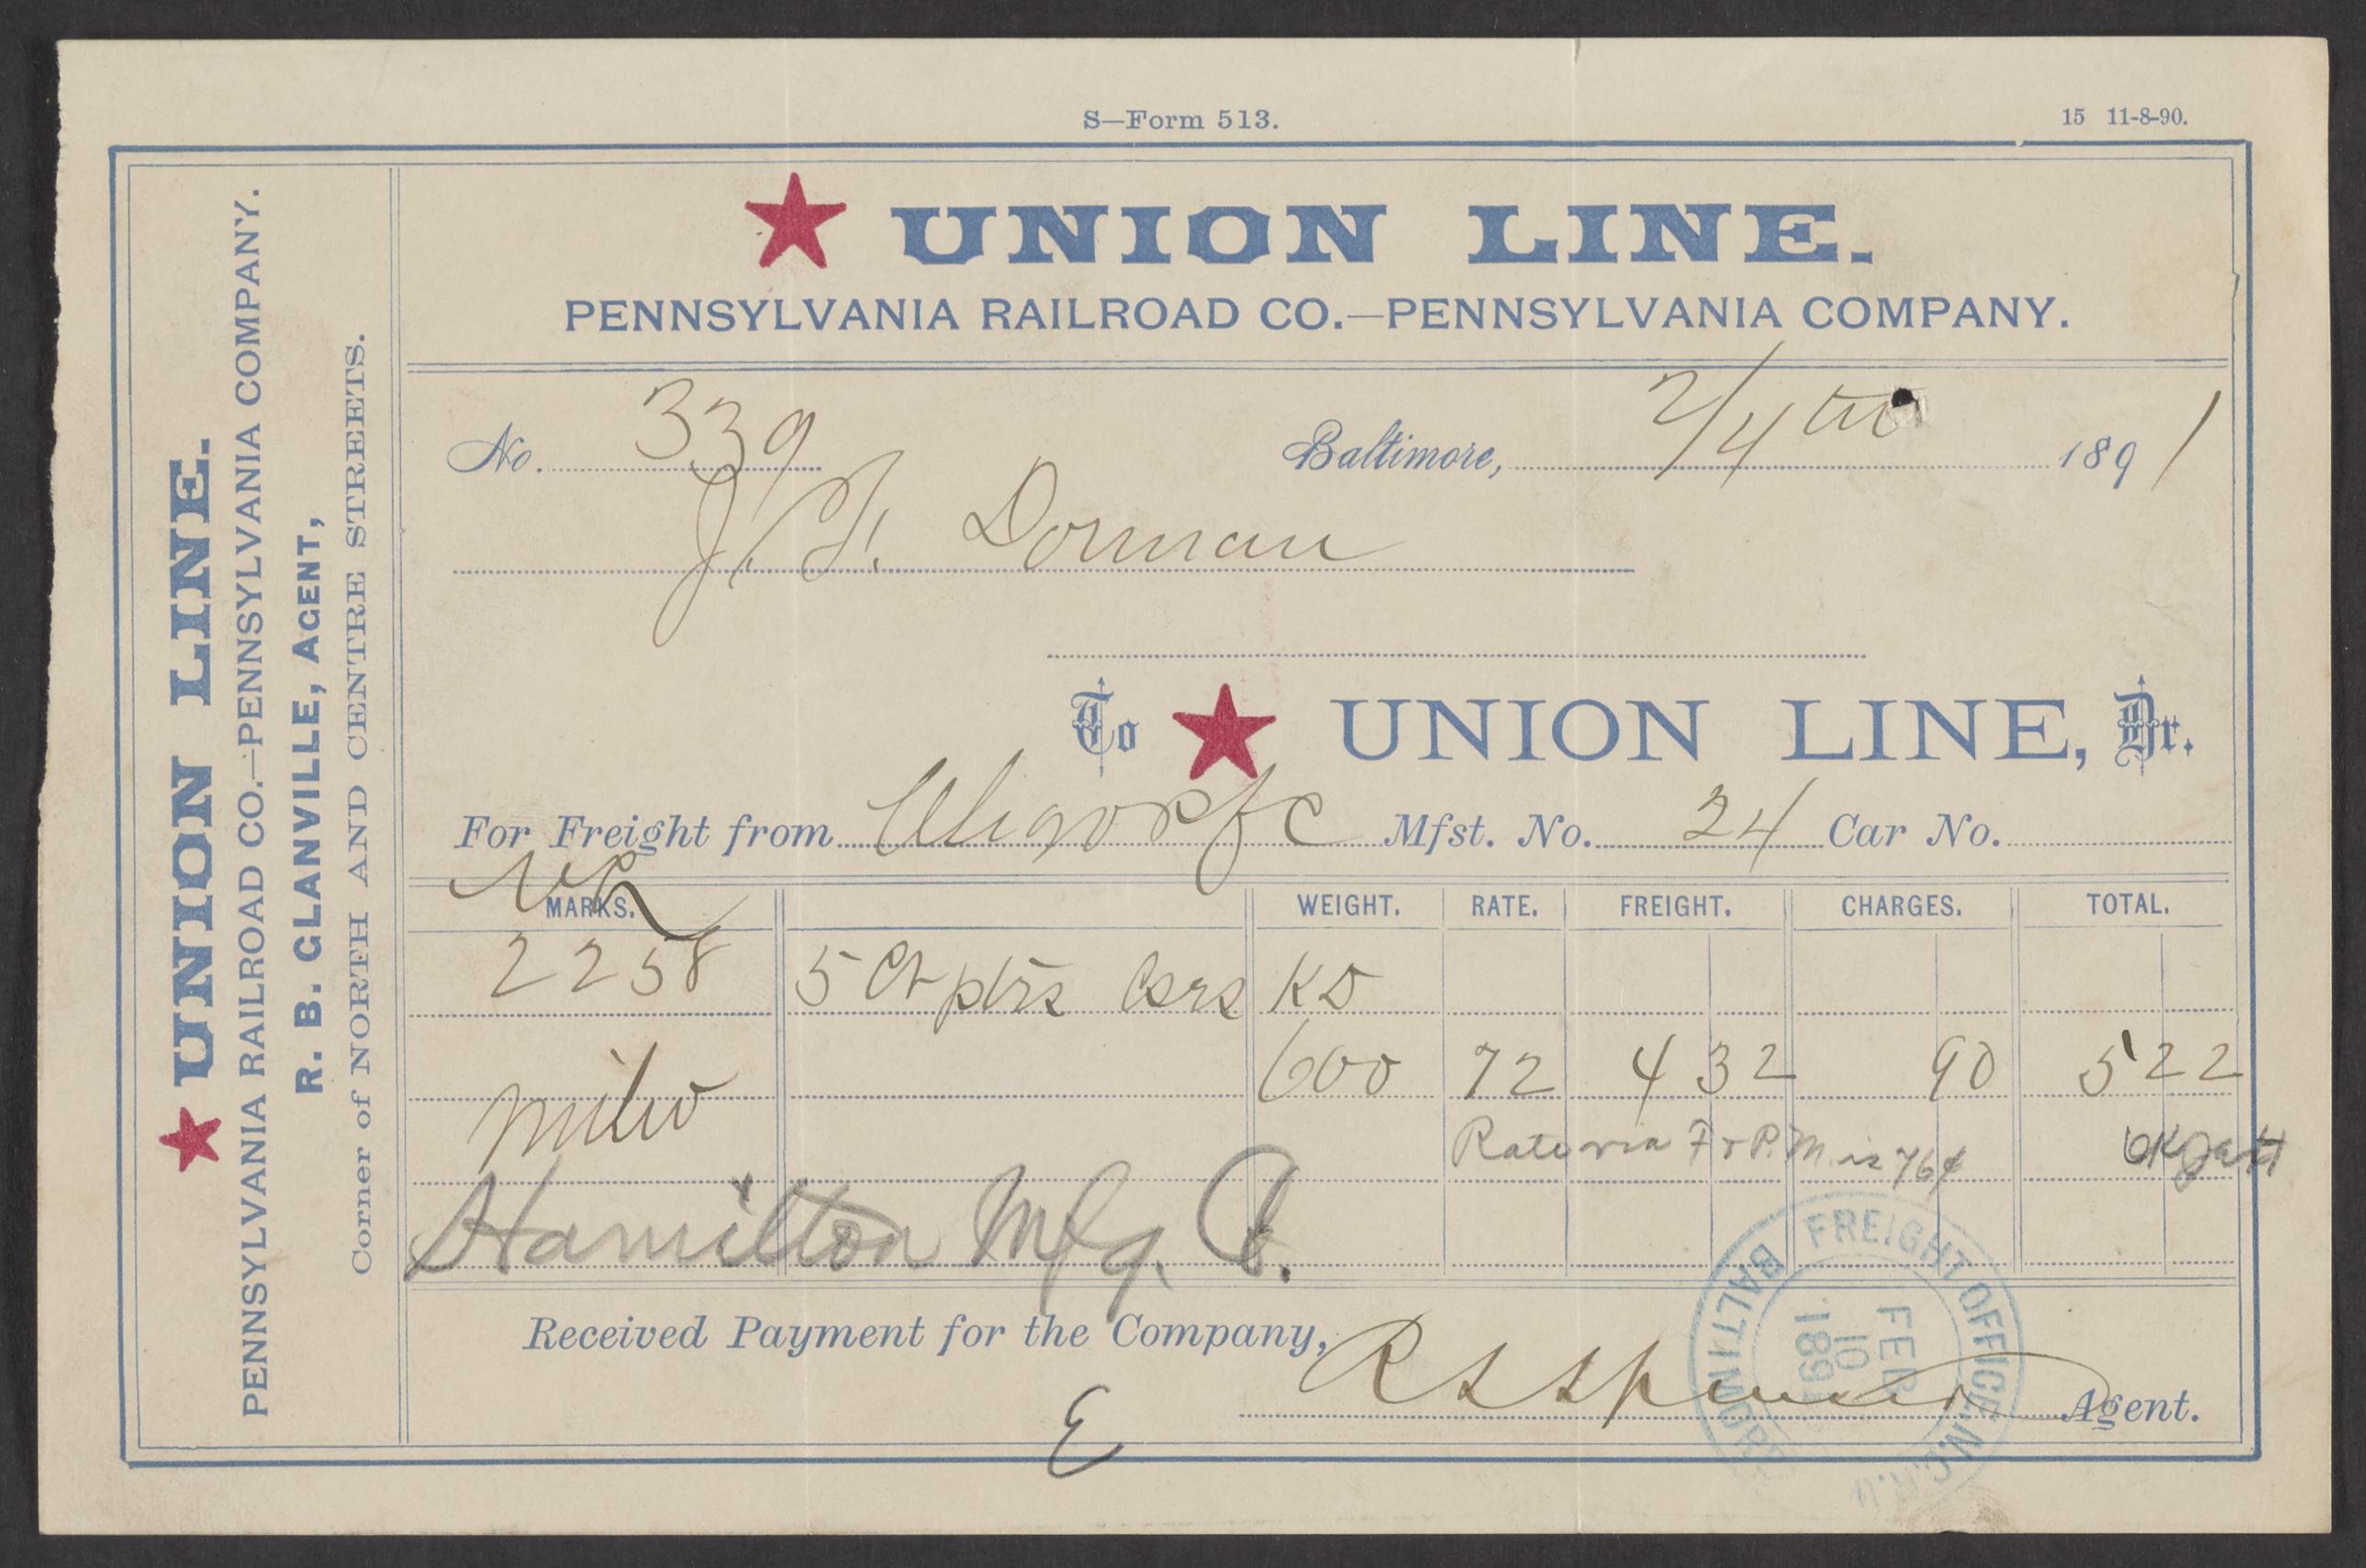 S—Form 513.
15 11-8-90.
★ UNION LINE.
PENNSYLVANIA RAILROAD CO.—PENNSYLVANIA COMPANY.
R. B. GLANVILLE, AGENT,
Corner of NORTH AND CENTRE STREETS.
★ UNION LINE.
PENNSYLVANIA RAILROAD CO.—PENNSYLVANIA COMPANY.
No. 339 Baltimore, 2/4 1891
J. F. Dorman
To ★ UNION LINE, Dr.
For Freight from Mfst. No. 24 Car No.
MARKS. WEIGHT. RATE. FREIGHT. CHARGES. TOTAL.
2258 5 KD
600 72 4 32 90 5 22
Milw
Rate via F & P.M. is 76¢ OK
Hamilton Mfg. Co.
Received Payment for the Company,
Agent.
E
FREIGHT OFFICE N.C.
BALTIMORE
FEB
10
1891